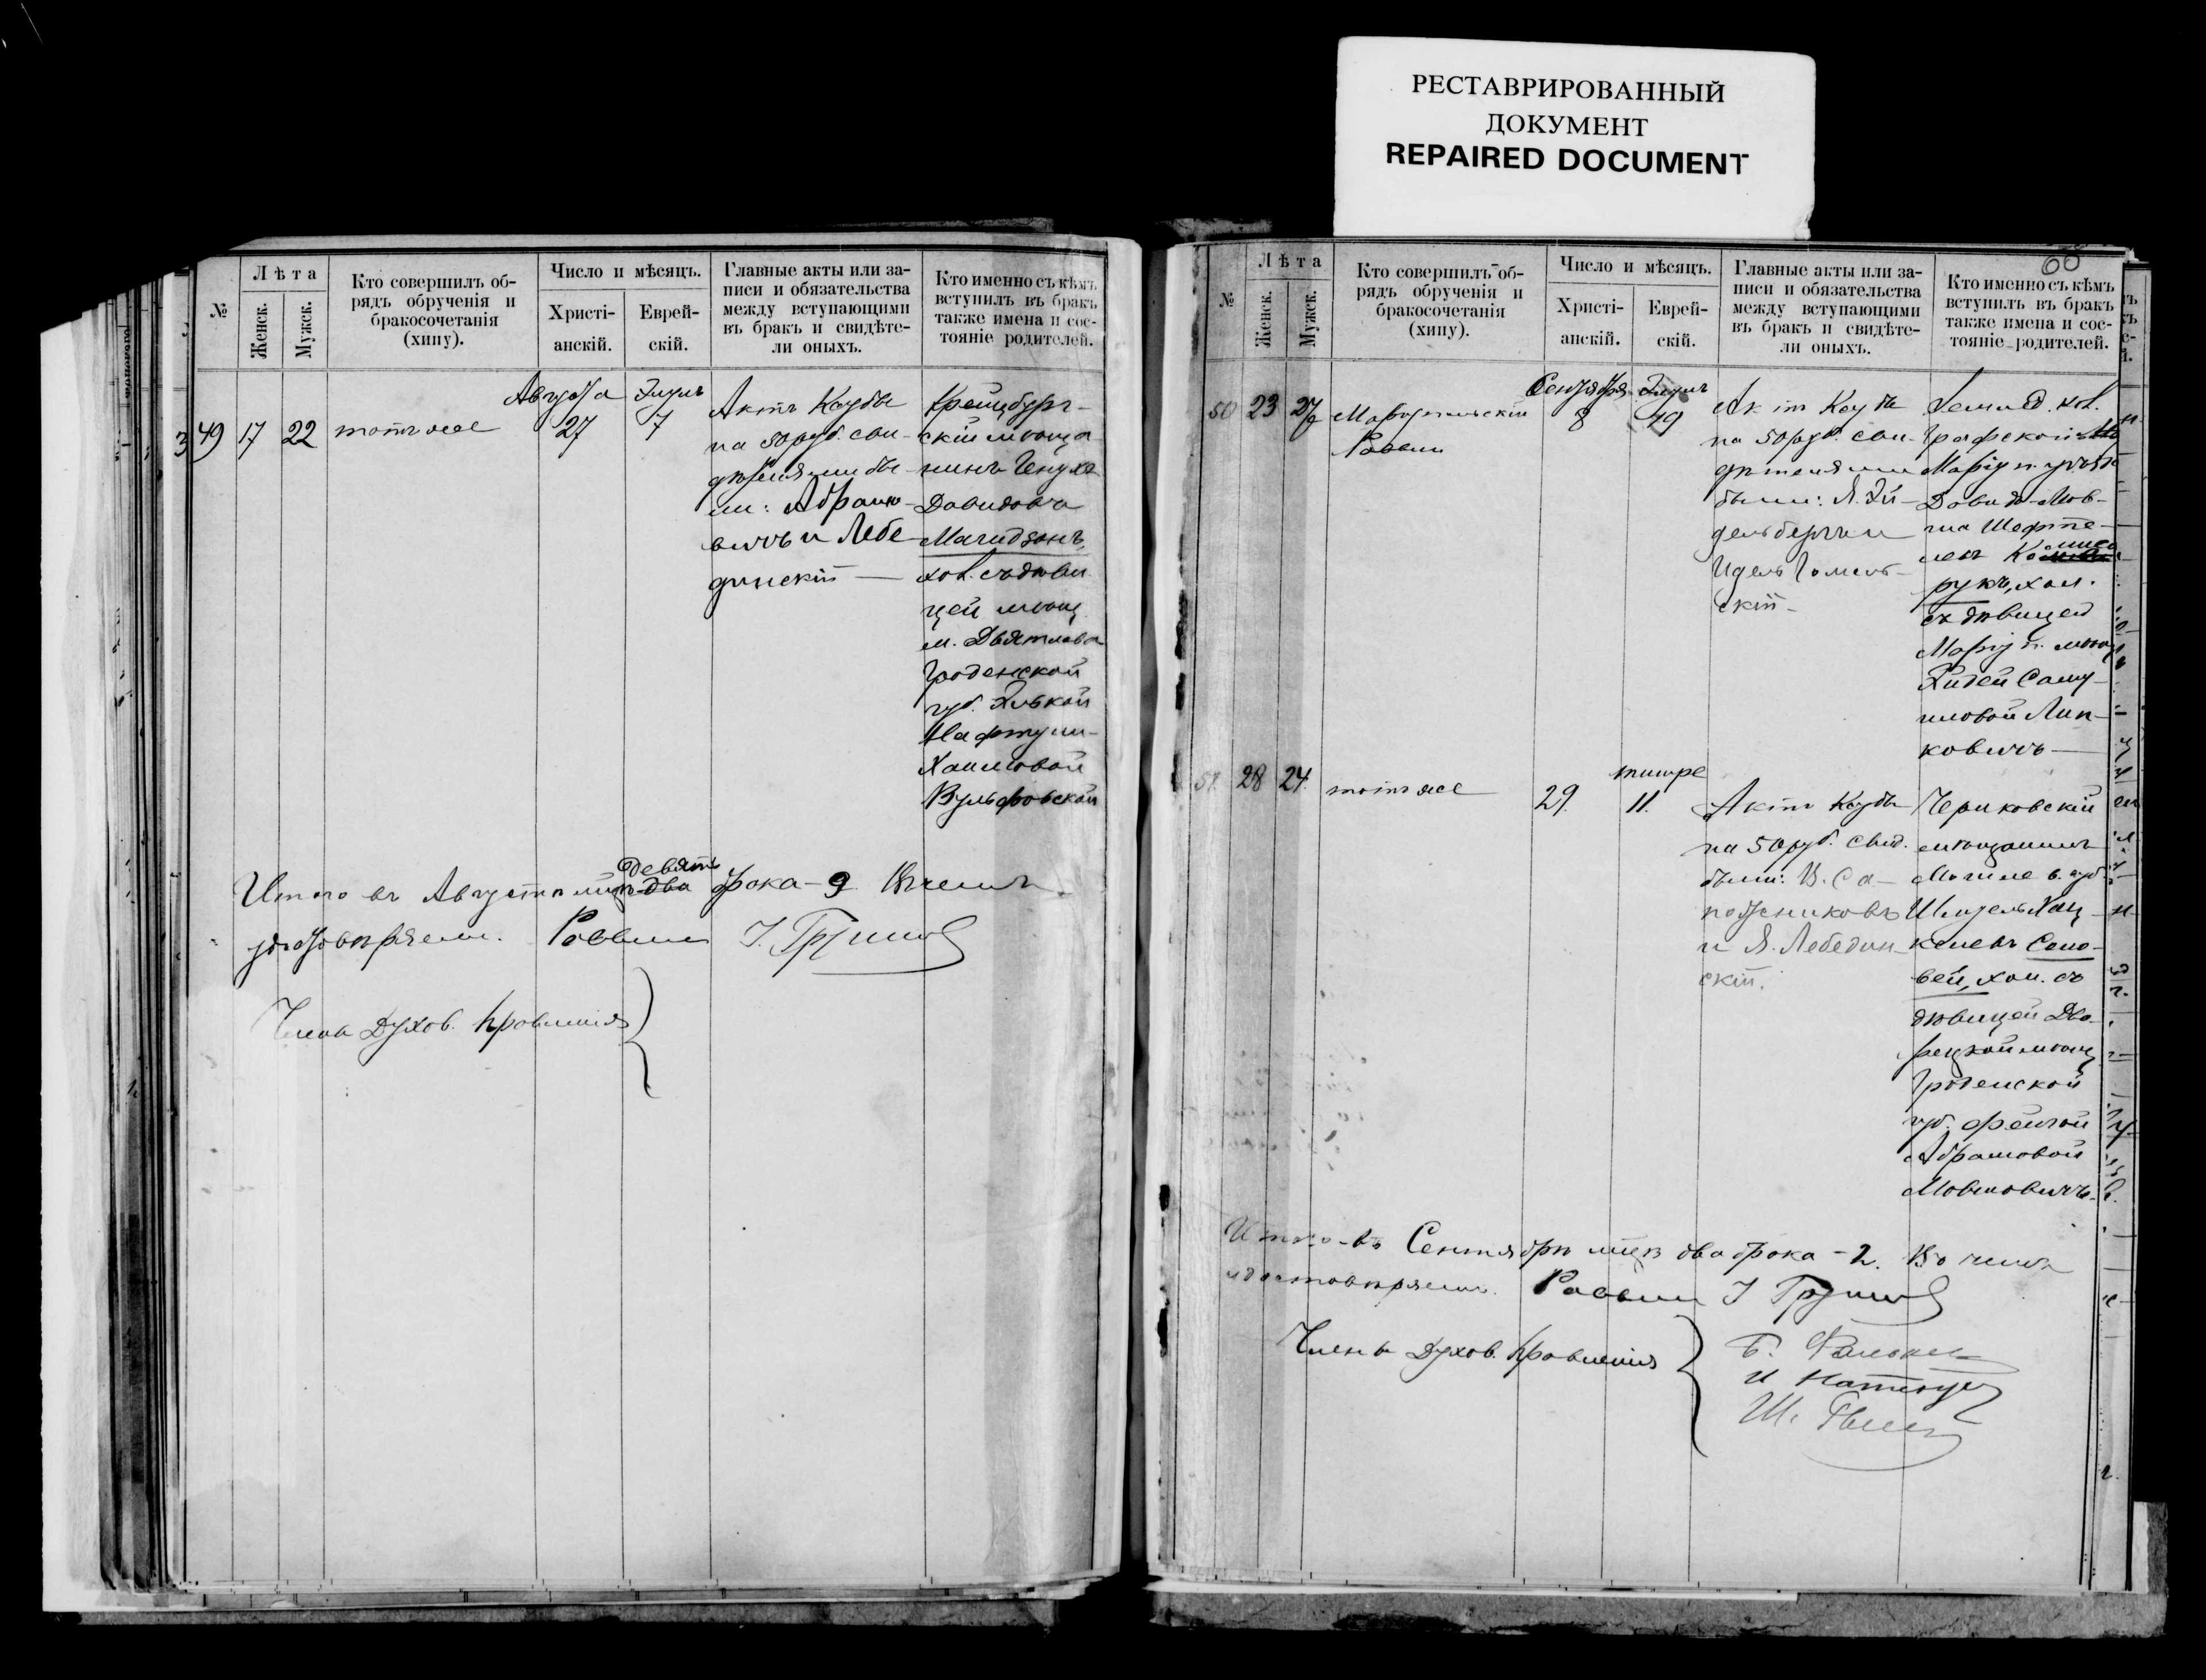 РЕСТАВРИРОВАННЫЙ
ДОКУМЕНТ
REPAIRED DOCUMENT
№
Лѣта
Женск.
Мужск.
Кто совершилъ об-
рядъ обрученія и
бракосочетанія
(хипу).
Число и мѣсяцъ.
Христі-
анскій.
Еврей-
скій.
Главные акты или за-
писи и обязательства
между вступающими
въ бракъ и свидѣте-
ли оныхъ.
Кто именно съ кѣмъ
вступилъ въ бракъ
также имена и сос-
тояніе родителей.
49 17 22
тотъ же
Августа
27
Элулъ
7
Актъ Ксубы
на 50 руб. сви-
дѣтелями бы-
ли: Абрамо-
вичъ и Лебе-
динскій
Крейцбург-
скій мѣща-
нинъ
Давидовъ
Магидзонъ,
хол. съ дѣви-
цей мѣщ.
м. Дятлова
Гроденской
губ. Элькой
Нафтули-
Хаимовой
Вульфовской
Итого въ Августѣ девять
брака - 9 Въ чемъ
удостовѣряемъ. Раввинъ
Члены Духов. Правленія
№
Лѣта
Женск.
Мужск.
Кто совершилъ об-
рядъ обрученія и
бракосочетанія
(хипу).
Число и мѣсяцъ.
Христі-
анскій.
Еврей-
скій.
Главные акты или за-
писи и обязательства
между вступающими
въ бракъ и свидѣте-
ли оныхъ.
Кто именно съ кѣмъ
вступилъ въ бракъ
также имена и сос-
тояніе родителей.
50 23 27
Маріупольскій
Раввинъ
Сентября
8
Элулъ
19
Актъ Ксубы
на 50 руб. сви-
дѣтелями
были: Я. Эй-
дельбергъ и
Идель Гомель-
скій
Землед. кол.
Графской
Маріуп. уѣзда
Давидъ-Мов-
ша Шефте-
левъ
рукъ, хол.
съ дѣвицей
Маріуп. мѣщ.
Хидей Саму-
иловой Лип-
ковичъ
51. 28 24.
тотъ же
29.
тишре
11.
Актъ Ксубы
на 50 руб. свид.
были: В. Са-
пожниковъ
и Я. Лебедин-
скій.
Чериковскій
мѣщанинъ
Могилев. губ.
Шмуель Хац-
келевъ Соло-
вей, хол. съ
дѣвицей Дво-
рецкой мѣщ.
Гроденской
губ. Фейгой
Абрамовой
Мовшовичъ.
Итого въ Сентябрѣ м-цѣ два брака - 2. Въ чемъ
удостовѣряемъ. Раввинъ
Члены Духов. Правленія